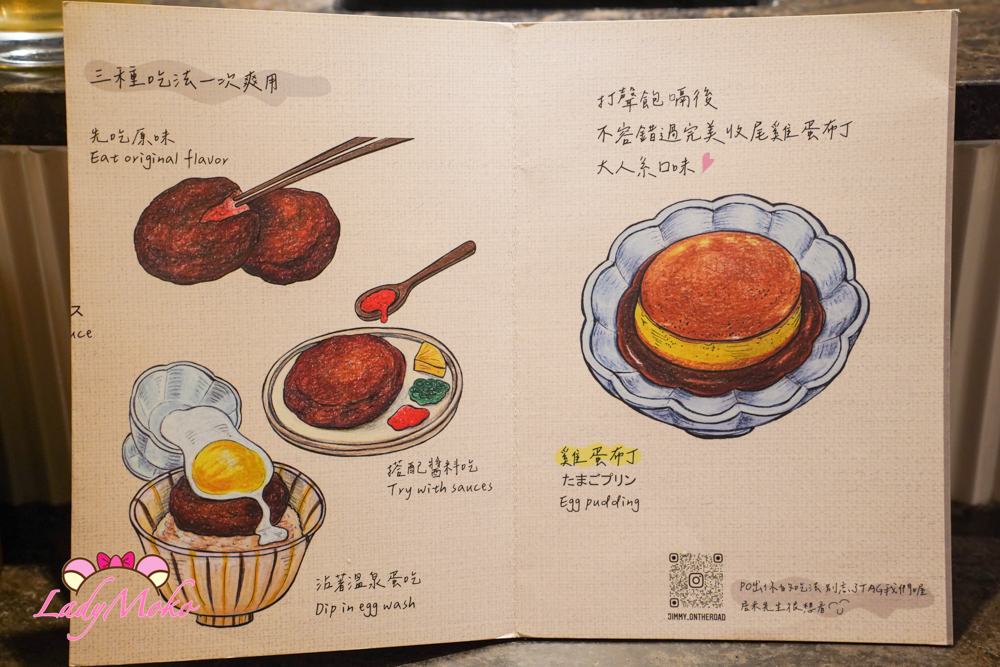 三種吃法一次爽用
先吃原味
Eat original flavor
ス
uce
搭配醬料吃
Try with sauces
沾著溫泉蛋吃
Dip in egg wash
打聲飽嗝後
不容錯過完美收尾雞蛋布丁
大人系口味
雞蛋布丁
たまごプリン
Egg pudding
JIMMY_ONTHEROAD
PO出你的吃法 別忘了TAG我們喔
LadyMoko